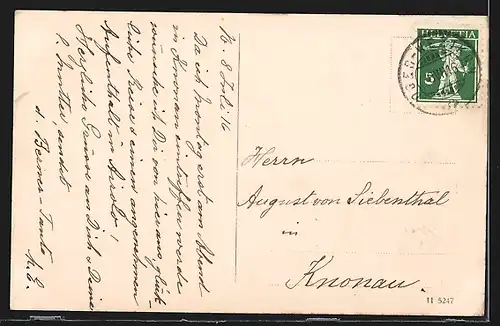 N. 8 Juli 16
Da ich Montag erst am Abend
in Knonau eintreffen werde
wünsche ich Dir von hier aus glück-
liche Reise & einen angenehmen
Aufenthalt in
Herzliche Grüsse an Dich & Deine
l. Mutter, sendet
d. Berner-Tante
M. E.
HELVETIA
5
Herrn
August von Siebenthal
in
Knonau.
11 5247